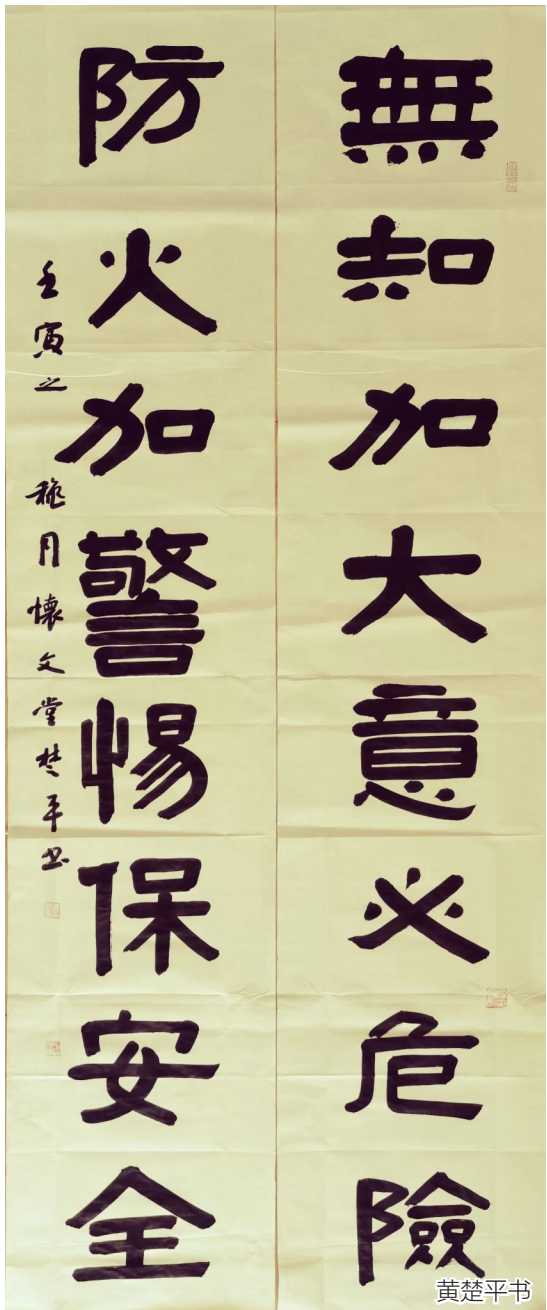 無知加大意必危險
防火加警惕保安全
壬寅之穐月懷文堂楚平书
黄楚平书